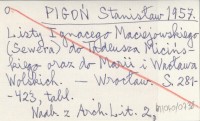 PIGOŃ Stanisław 1957.
Listy Ignacego Maciejowskiego
(Sewera) do Tadeusza Miciń-
skiego oraz do Marii i Wacława
Wolskich. — Wrocław. S. 281-
-423, tabl.
Nadb. z Arch. Lit. 2,